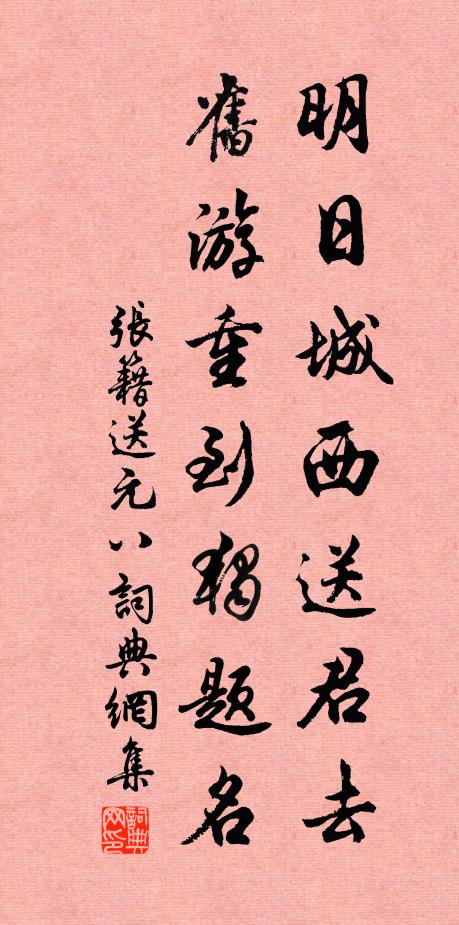 明日城西送君去
舊游重到獨題名
張籍送元八詞典網集
詞典網印